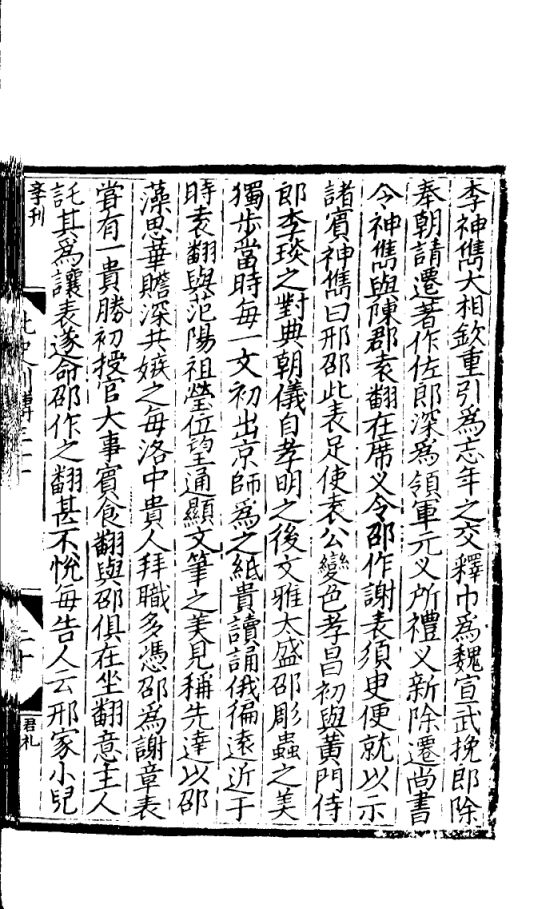 李神儁大相欽重引爲忘年之交釋巾爲魏宣武挽郎除
奉朝請遷著作佐郎深爲領軍元义所禮义新除遷尚書
令神儁與陳郡袁翻在席义令邵作謝表須臾便就以示
諸賓神儁曰邢邵此表足使袁公變色孝昌初與黄門侍
郎李琰之對典朝儀自孝明之後文雅大盛邵彫蟲之美
獨步當時每一文初出京師爲之紙貴讀誦俄徧遠近于
時袁翻與范陽祖瑩位望通顯文筆之美見稱先達以邵
藻思華贍深共嫉之每洛中貴人拜職多憑邵爲謝章表
甞有一貴勝初授官大事賓食翻與邵俱在坐翻意主人
託其爲讓表遂命邵作之翻甚不悅每告人云邢家小兒
君礼